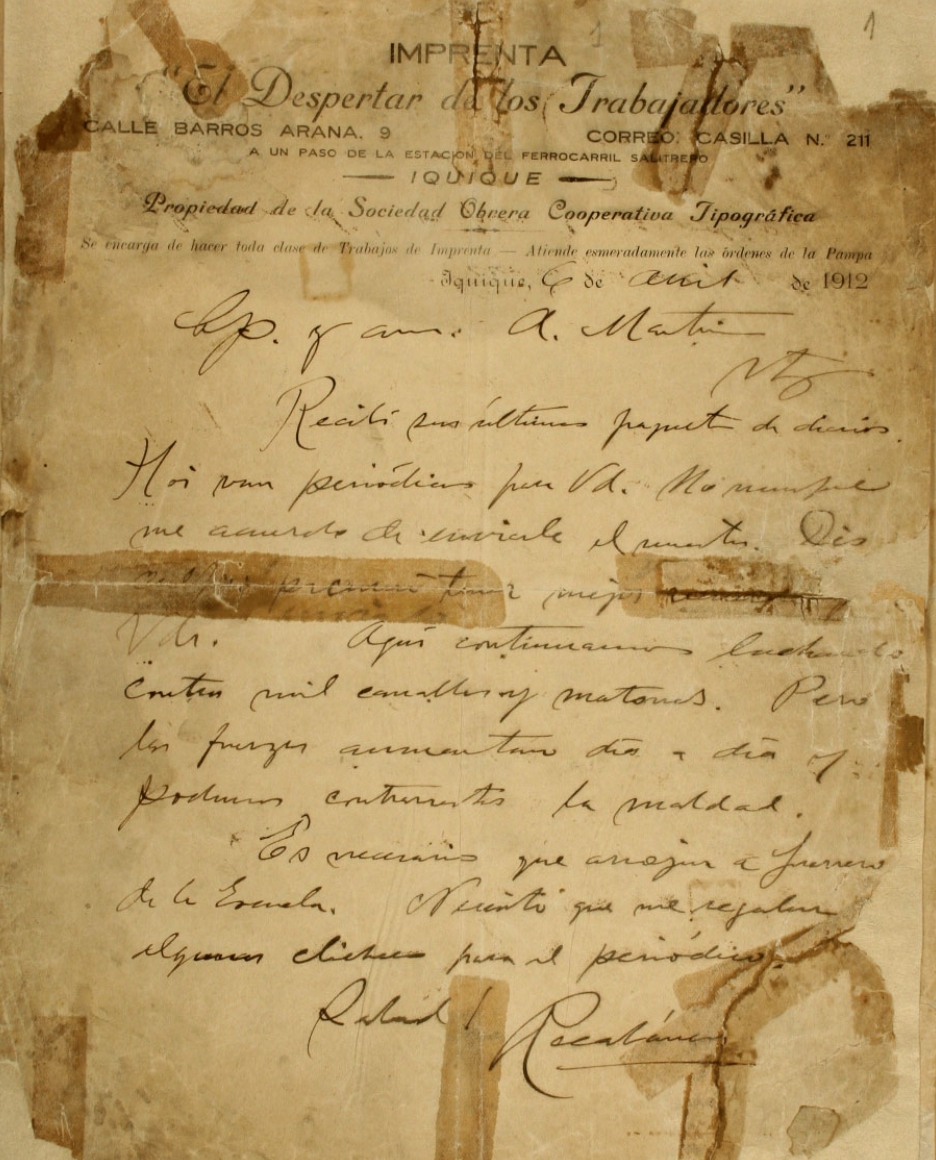 1
1
IMPRENTA
"El Despertar de los Trabajadores"
CALLE BARROS ARANA. 9 CORREO: CASILLA N.° 211
A UN PASO DE LA ESTACIÓN DEL FERROCARRIL SALITRERO
IQUIQUE
Propiedad de la Sociedad Obrera Cooperativa Tipográfica
Se encarga de hacer toda clase de Trabajos de Imprenta — Atiende esmeradamente las órdenes de la Pampa
Iquique, 6 de abril de 1912
Cp. y am. A. Martin
Recibí sus últimos paquet de diarios.
Hoi van periódicos para Vd. No
me acuerdo de enviarle el nuestro.
tener mejor
Vds. Aquí continuamos luchando
contra mil canallas y matones. Pero
las fuerzas aumentan dia a dia y
podemos contrarrestar la maldad.
Es necesario que arrojen a Guerrero
de la Escuela. Necesito que me regalen
algunos clichees para el periódico.
Salud! Recabárren